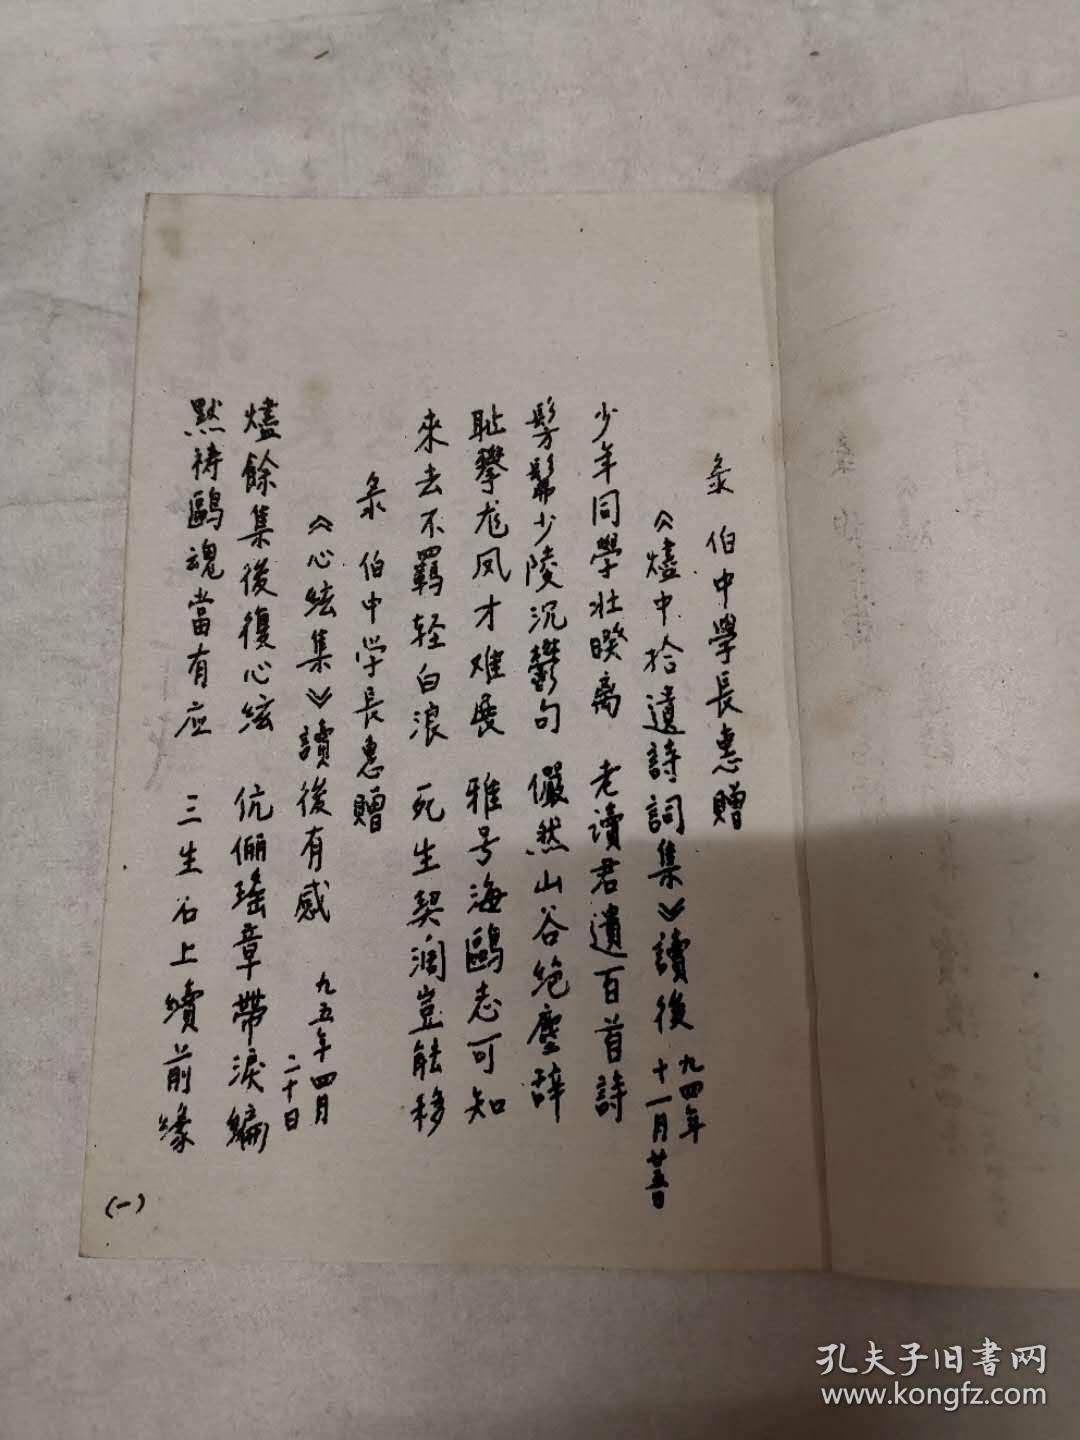 彔 伯中學長惠贈
《燼中拾遺詩詞集》讀後 九四年
十一月廿五日
少年同學壯暌离 老讀君遺百首詩
髣髴少陵沉鬱句 儼然山谷絶塵辞
耻攀龙凤才难展 雅号海鷗志可知
來去不羈轻白浪 死生契濶豈能移
彔 伯中学長惠贈
《心絃集》讀後有感 九五年四月
二十日
燼餘集後復心絃 伉儷瑤章帶淚編
黙祷鷗魂當有应 三生石上續前緣
(一)
孔夫子旧書网
www.kongfz.com